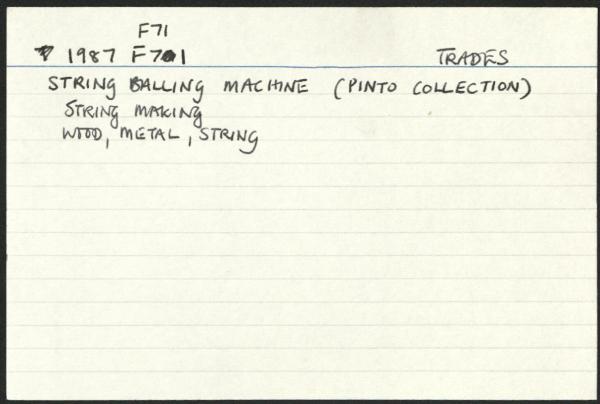 F71
1987 F701 TRADES
STRING BALLING MACHINE (PINTO COLLECTION)
STRING MAKING
WOOD, METAL, STRING